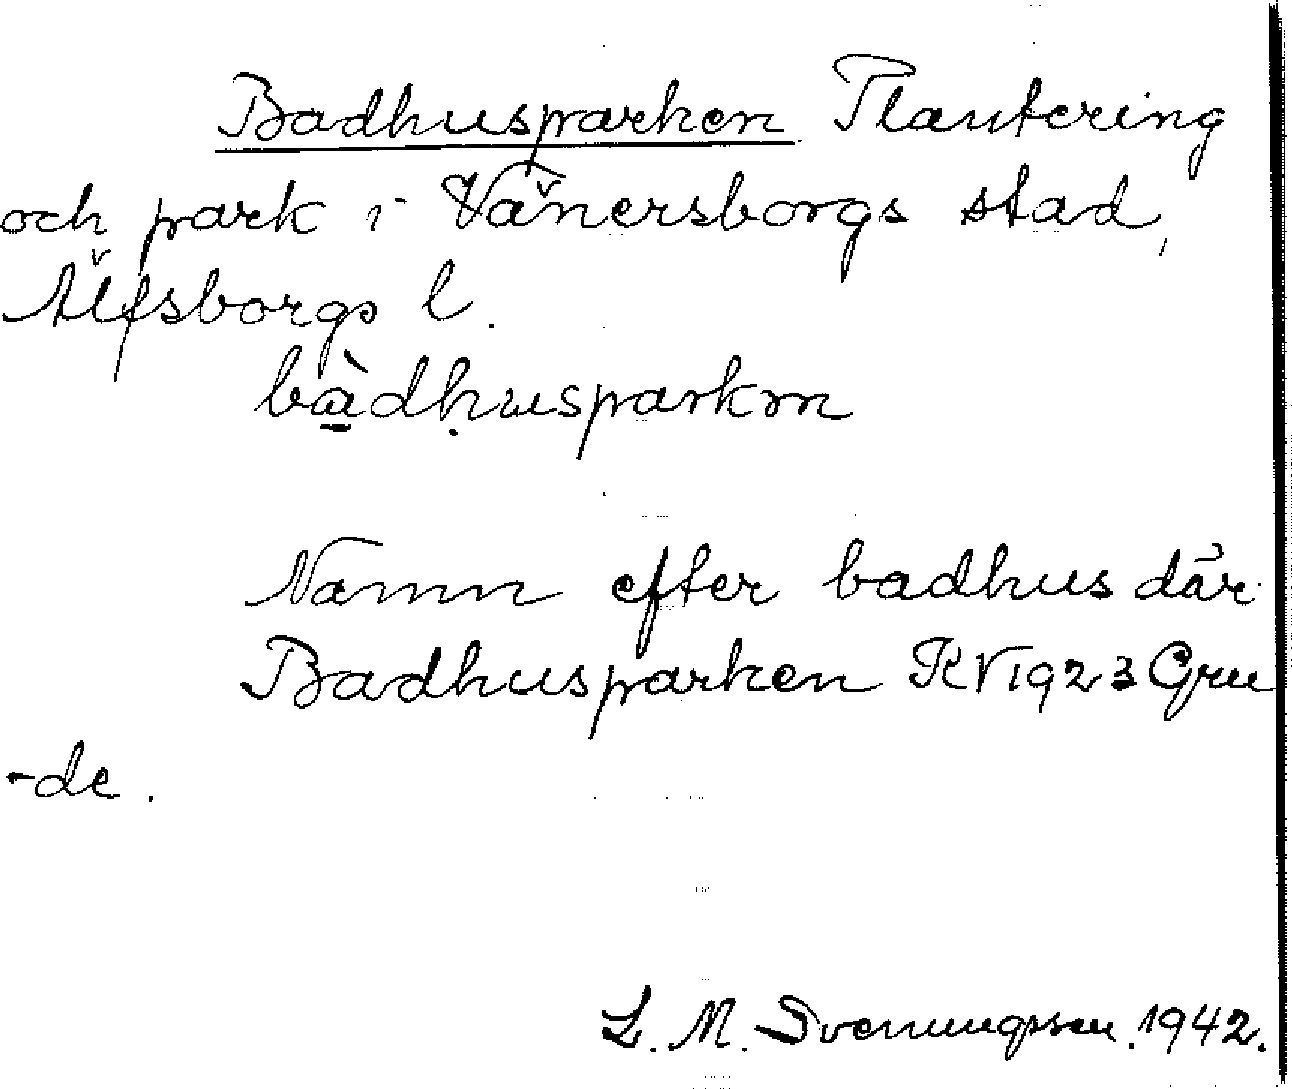 Badhusparken Plantering
och park i Vänersborgs stad,
Älfsborgs l.
bàdhusparkm
Namn efter badhus där
Badhusparken KV 1923 Gru
-de.
L. M. Svenungsson. 1942.